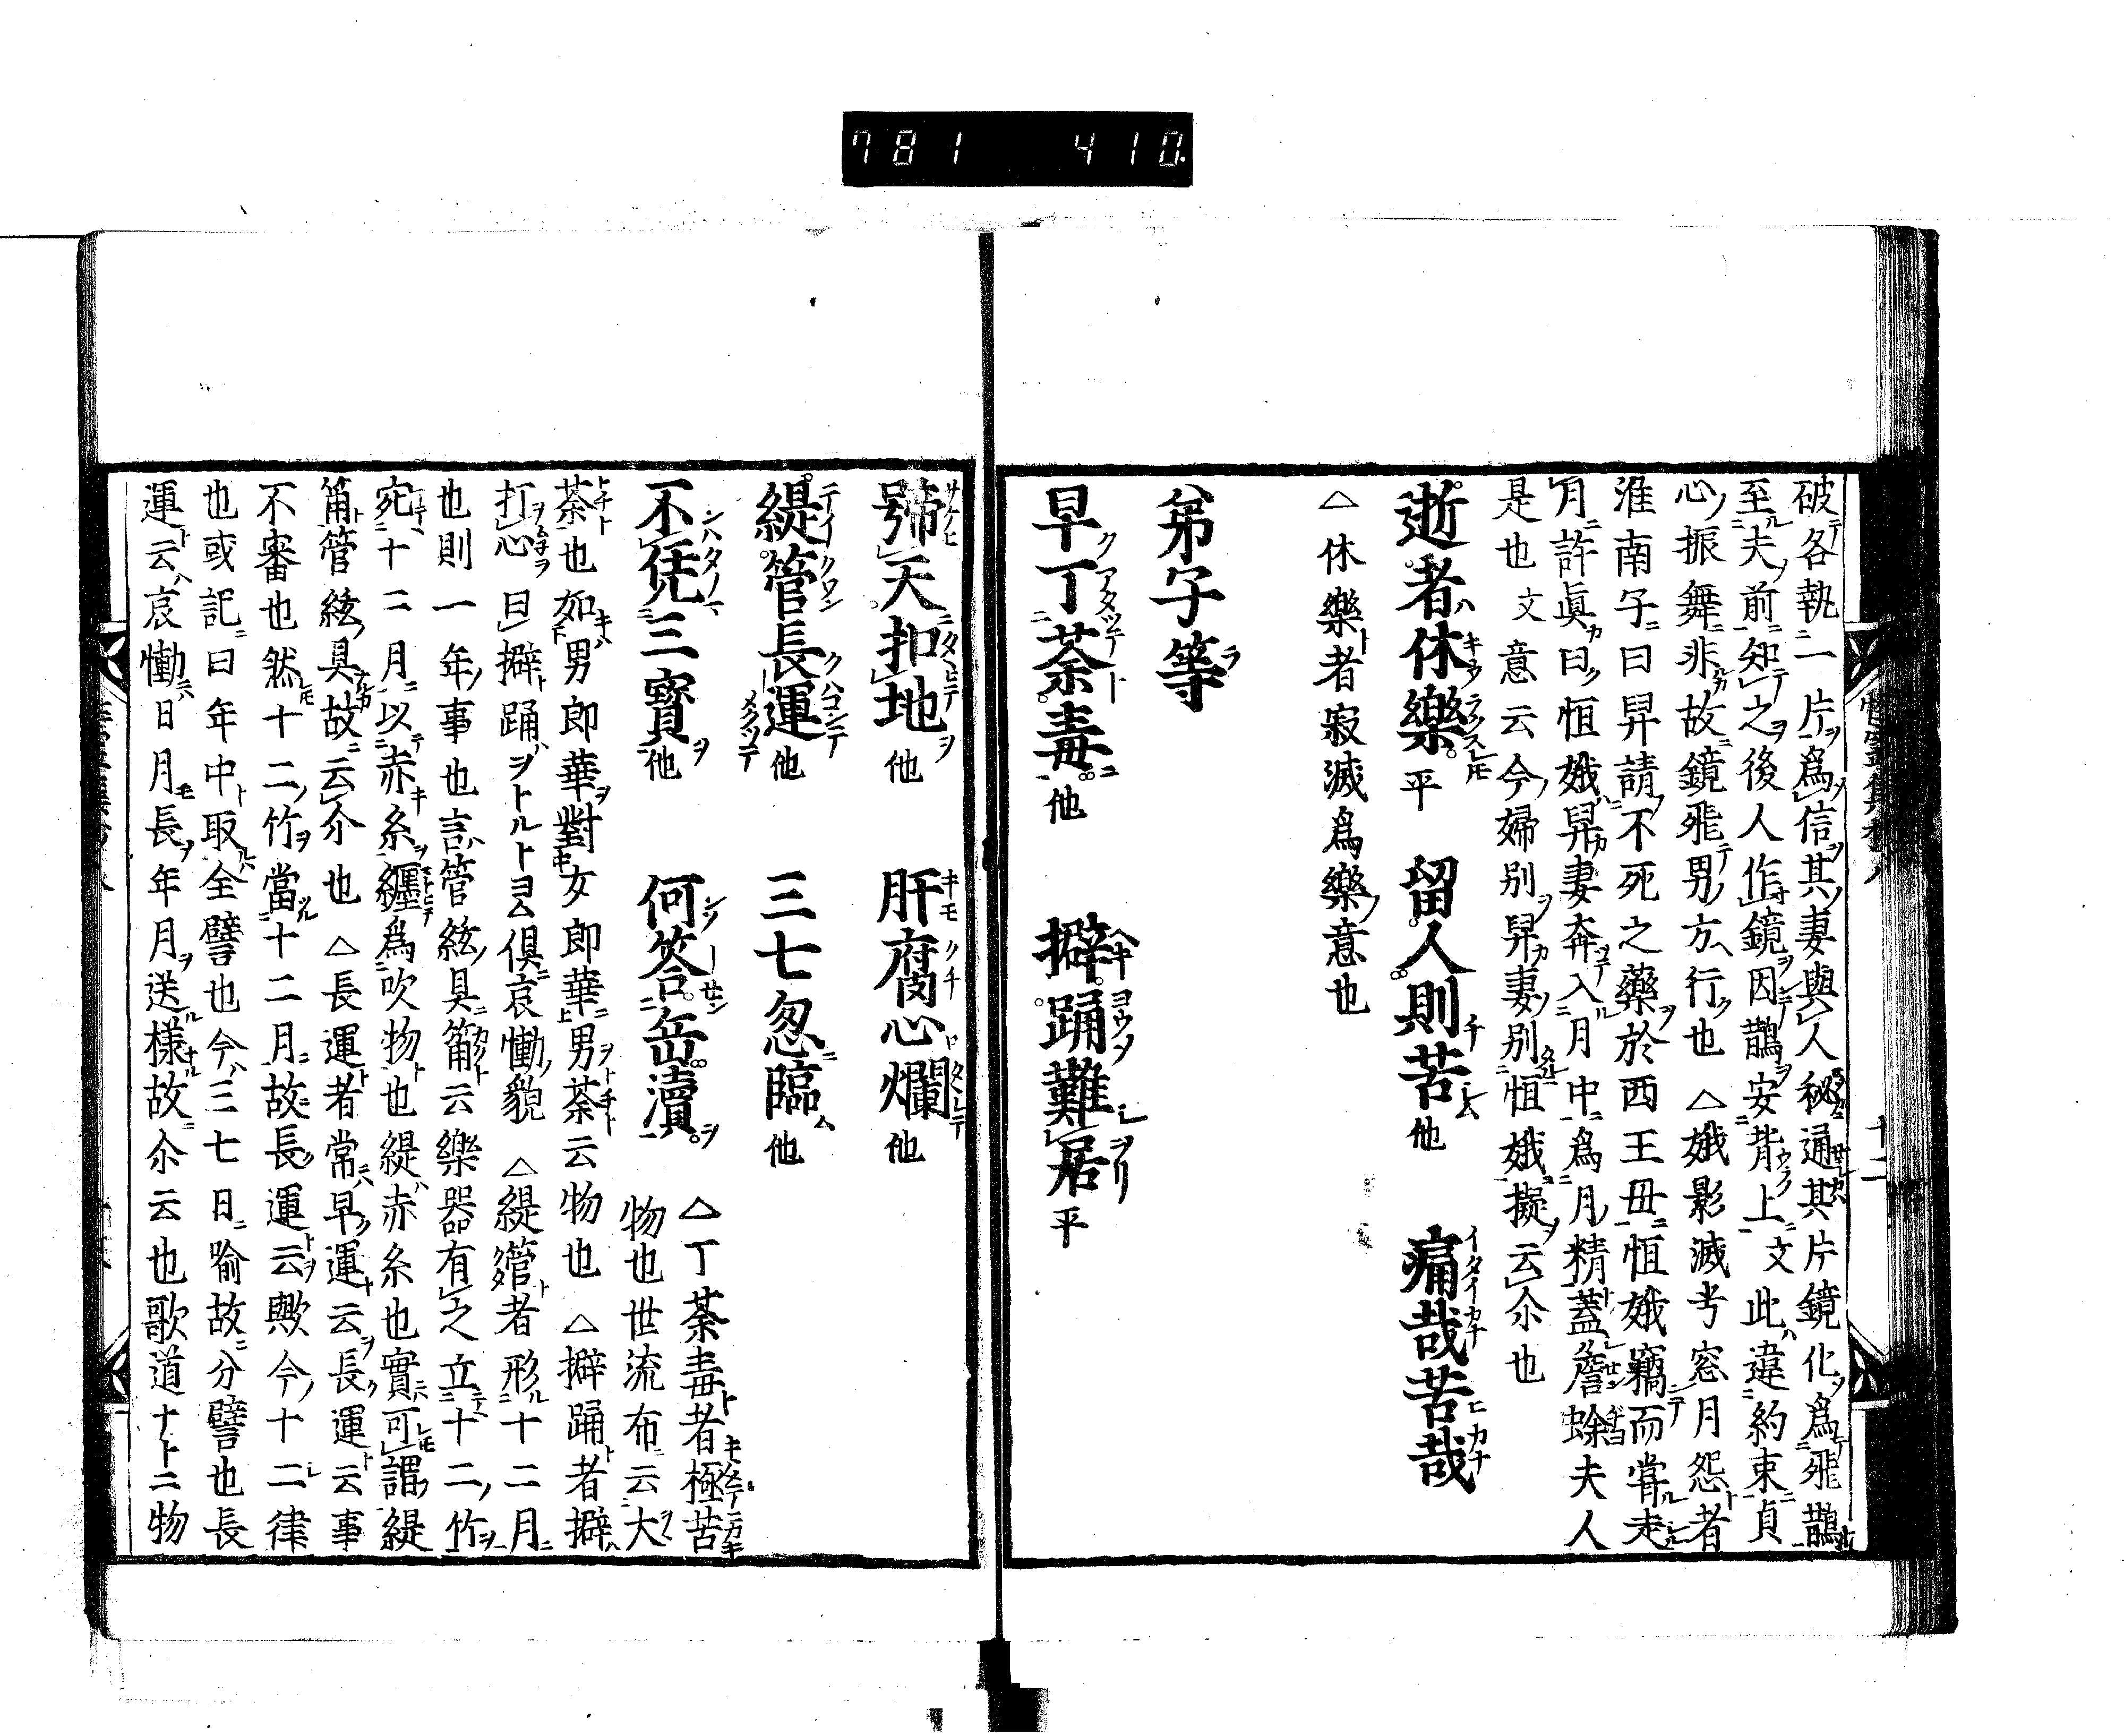 781 410
破各執一片爲信其妻與人秘通其片鏡化爲飛鵲
至夫前知之後人作鏡因鵲安背上文此違約束貞
心振舞非故鏡飛男方行也△娥影滅兮窓月怨者
淮南子曰羿請不死之藥於西王母恒娥竊而甞走
月許眞曰恒娥羿妻奔入月中爲月精蓋詹蜍夫人
是也文意云今婦別羿妻別恒娥擬云尒也
逝者休樂平 留人則苦他 痛哉苦哉
△休樂者寂滅爲樂意也
弟子等
早丁荼毒他 擗踊難居平
號天扣地他 肝腐心爛他
緹管長運他 三七忽臨他
不凭三寶他 何答岳瀆 △丁荼毒者極苦
物也世流布云大
荼也如男郎華對女郎華男荼云物也△擗踊者擗
打心曰擗踊ヲトルトヨム倶哀慟貌 △緹管者形十二月
也則一年事也言管絃具筩云樂器有之立十二竹
宛十二月以赤糸纏爲吹物也緹赤糸也實可謂緹
筩管絃具故云尒也△長運者常早運云長運云事
不審也然十二竹當十二月故長運云歟今十二律
也或記曰年中取全譬也今三七日喻故分譬也長
運云哀慟日月長年月送樣故尒云也歌道ナト二物